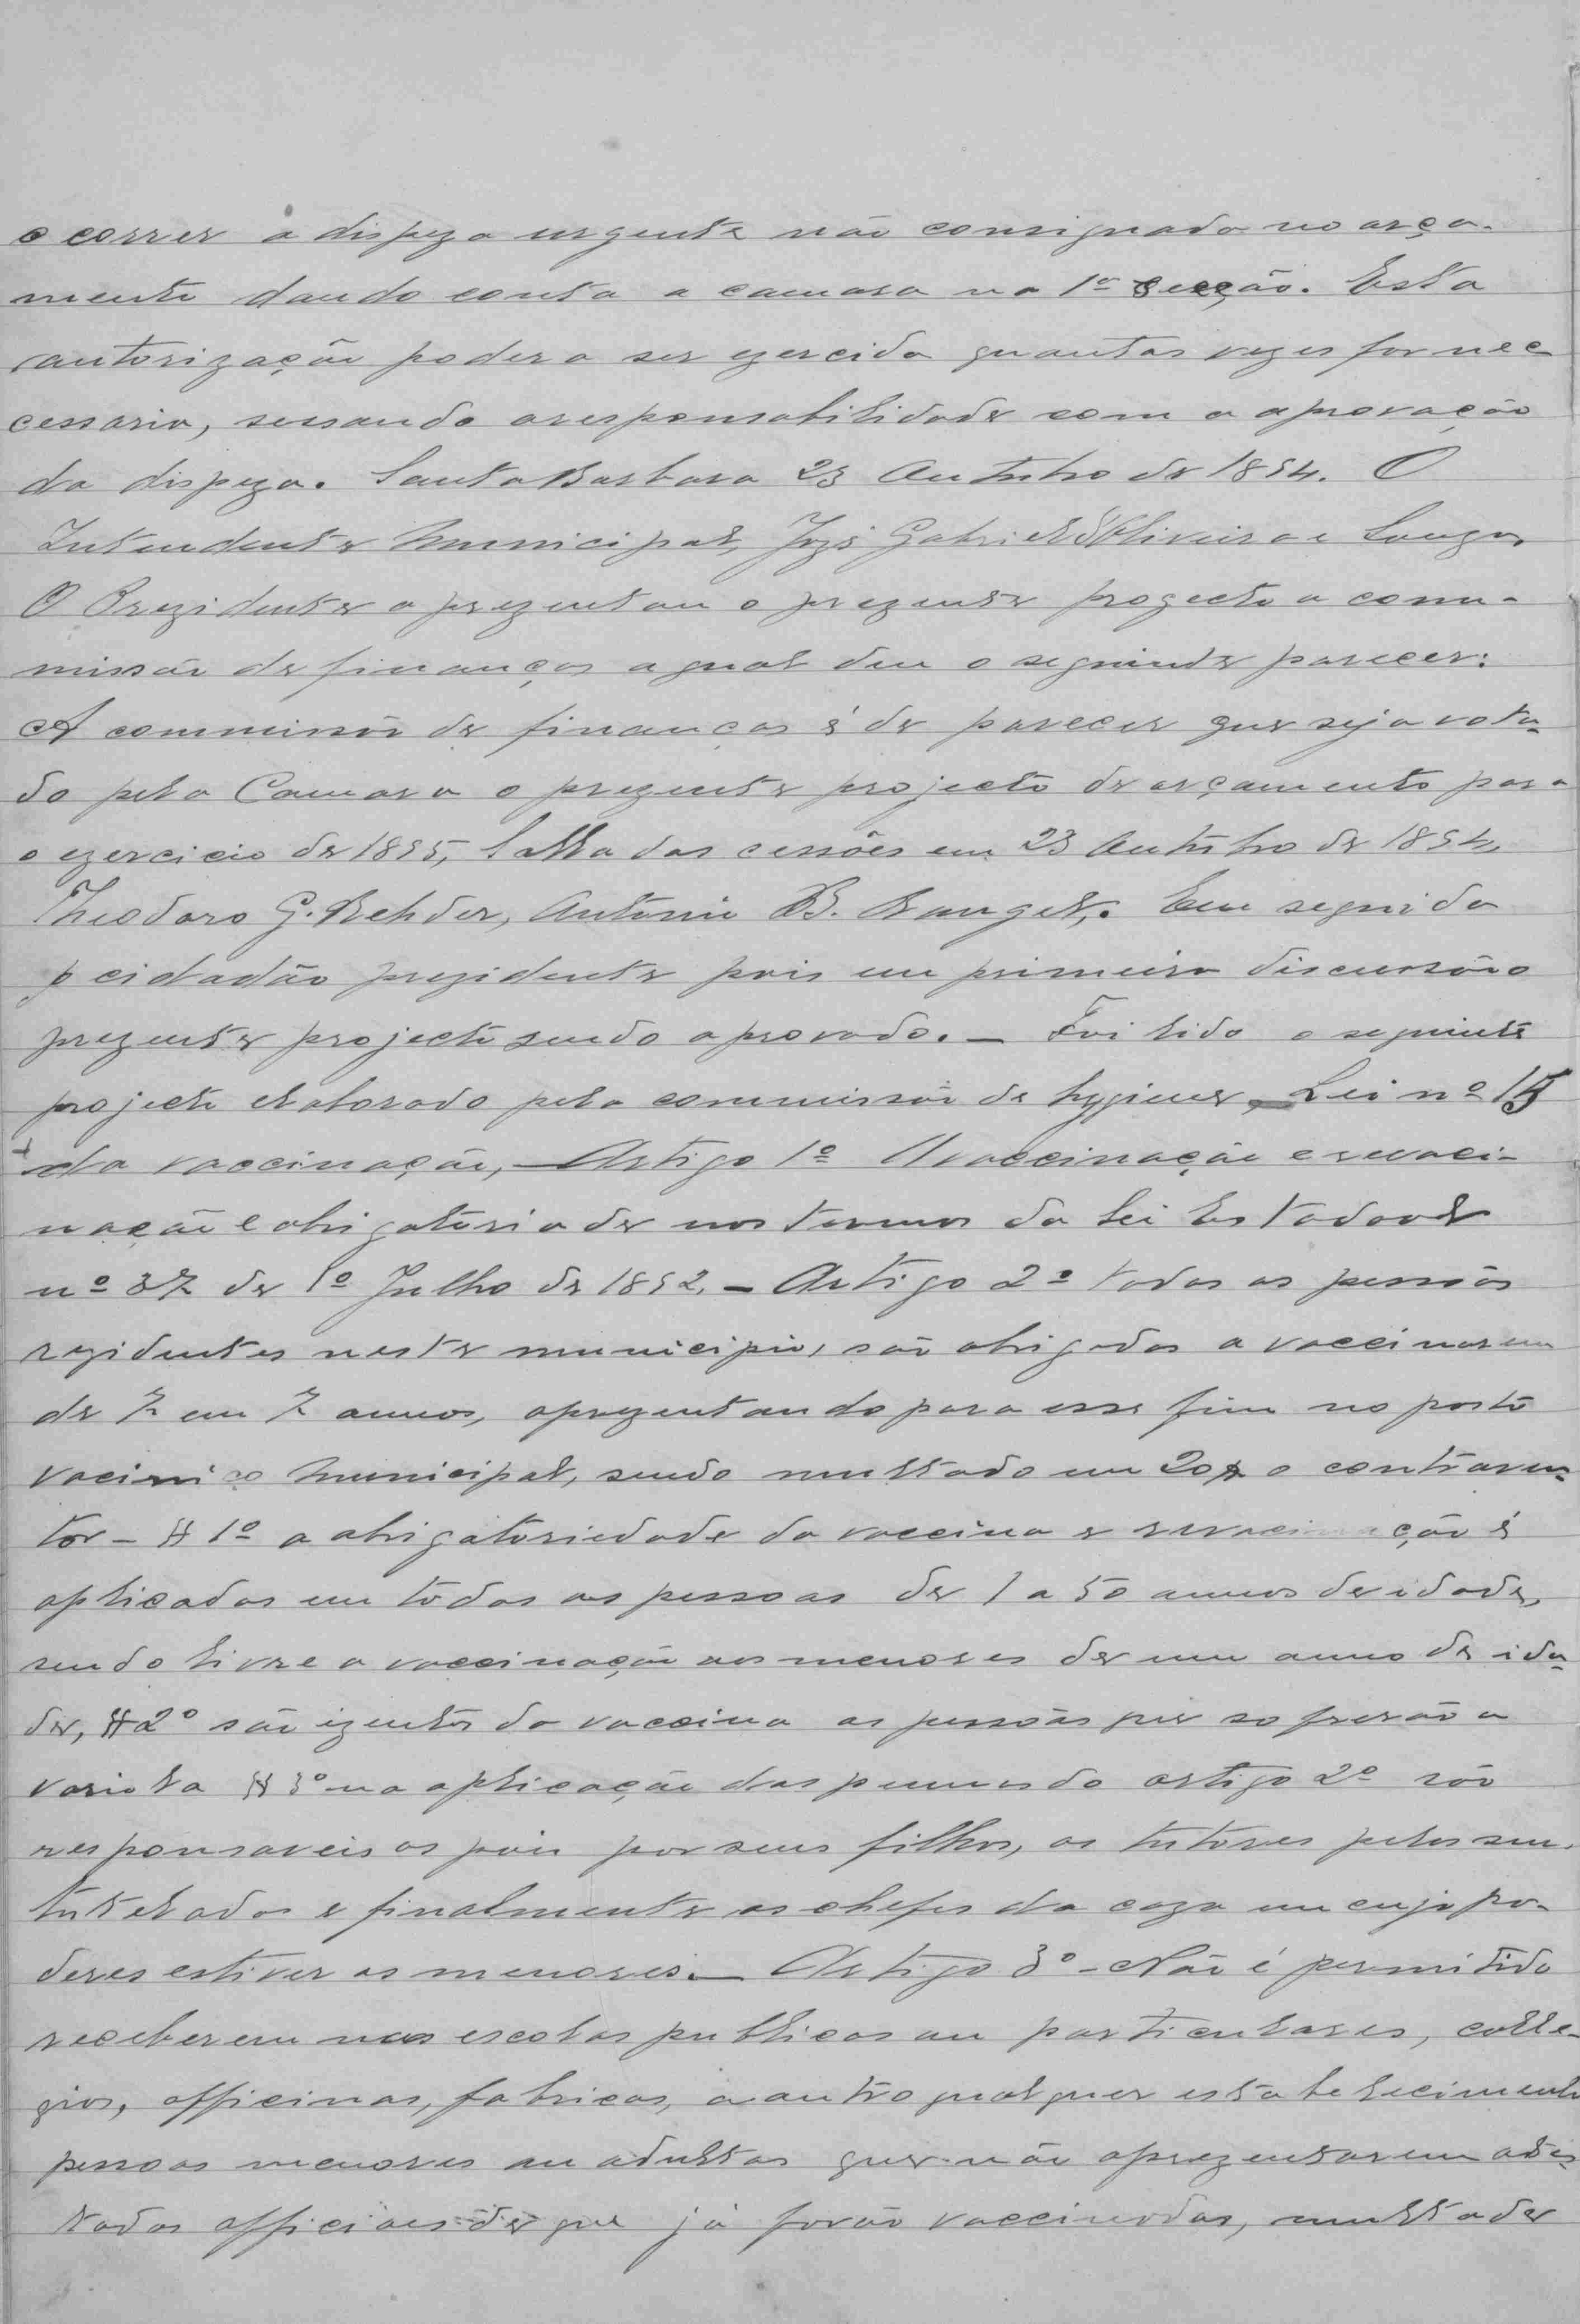 occorrer a dispeza urgente não consignada no orça-
mento dando conta a camara na 1ª secção. Esta
autorização podera ser ezercida quantas vezes for nec
cessario, sessando a responsabilidade com a aprovação
da dispeza. Santa Barbara 23 Outubro de 1894. O
Intendente Municipal, Jozé Gabriel d'Oliveira e Souza
O Prezidente aprezentou o prezente progecto a com-
missão de finanças a qual deu o seguinte parecer:
A commissão de finanças é de parecer que seja vota-
do pela Camara o prezente projecto de orçamento para
o ezercicio de 1895, Salla das cessões em 23 Outubro de 1894,
Theodoro G. Rehder, Antonio B. Rangel,. Em seguida
o cidadão prezidente pois em primeira discussão o
prezente projecto sendo aprovado. — Foi lido o seguinte
projecto elaborado pela commissão de hygiene, Lei nº 15
da vaccinação, — Artigo 1º A vaccinação e revaci-
nação e obrigatoriade nos termos da lei Estadoal
nº 37 de 1º Julho de 1892. — Artigo 2º todas as pessôas
rezidentes neste municipio, são obrigadas a vaccinarem
de 7 em 7 annos, aprezentando para esse fim no posto
vacinico Municipal, sendo multado em 20$ o contraven-
tor — § 1º a obrigatoriedade da vaccina e revacinação é
aplicadas em todas as pessoas de 1 a 50 annos de idade,
sendo livre a vaccinação aos menores de um anno de ida-
de, § 2º são izentos da vaccina as pessôas que sofrerão a
variola § 3º na aplicação das pennas do artigo 2º são
responsaveis os pais por seus filhos, os tutores pelos seus
tutelados e finalmente os chefes da caza em cujo po-
deres estiver os menores. — Artigo 3º — Não é permitido
receberem nas escolas publicas ou particulares, colle-
gios, officinas, fabricas, ou outro qualquer estabelecimento
pessoas menores ou adultas que não aprezentarem ates-
tados officiaes de que já forão vaccinadas, multa de